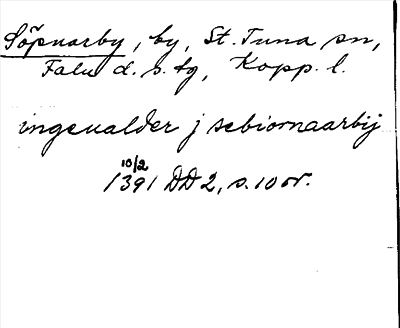 Söpnarby, by, St. Tuna sn,
Falu d. s. tg, Kopp. l.
ingeualder j sebiornaarbij
10/2 1391 DD 2, s. 10 or.